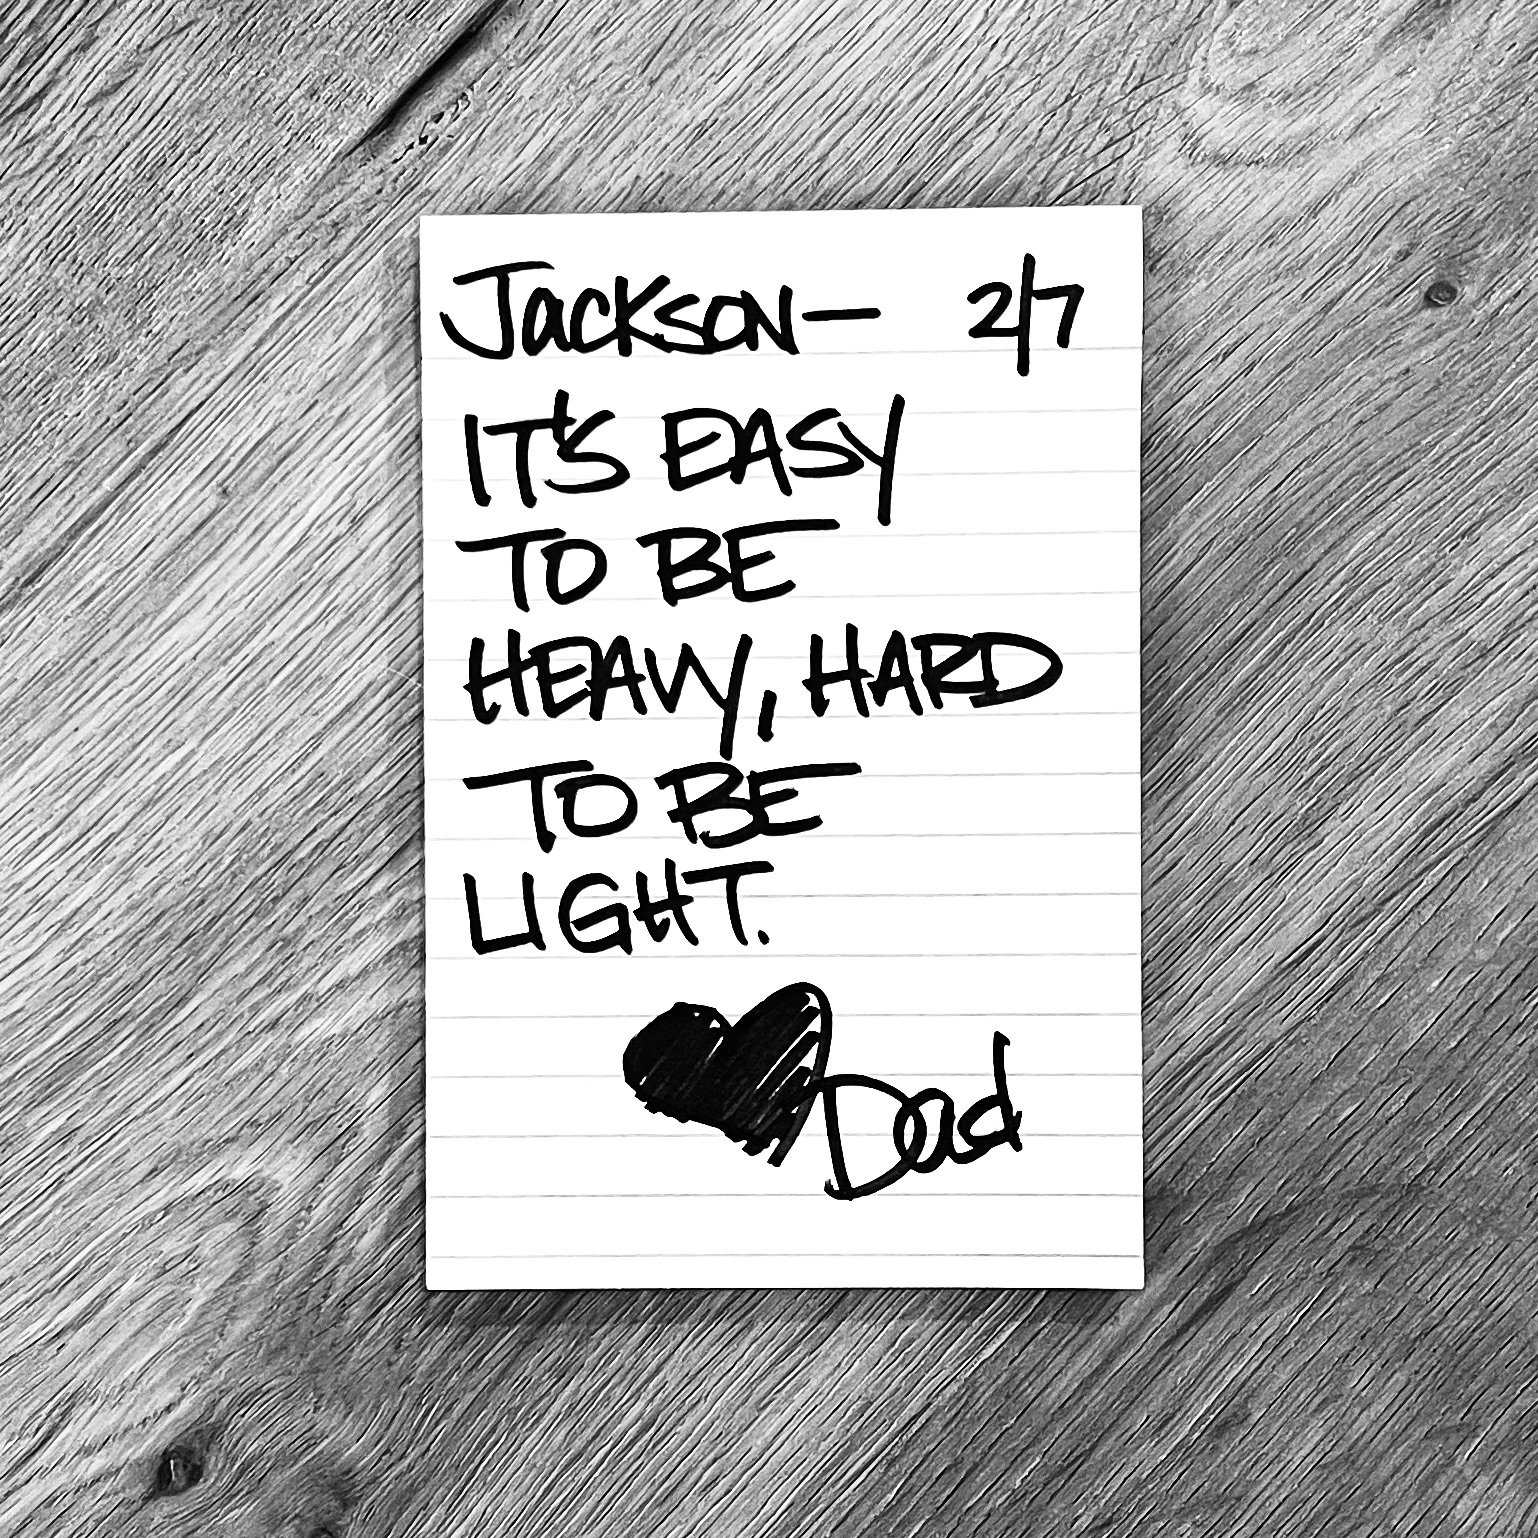 Jackson— 2/7
IT'S EASY
TO BE
HEAVY, HARD
TO BE
LIGHT.
Dad